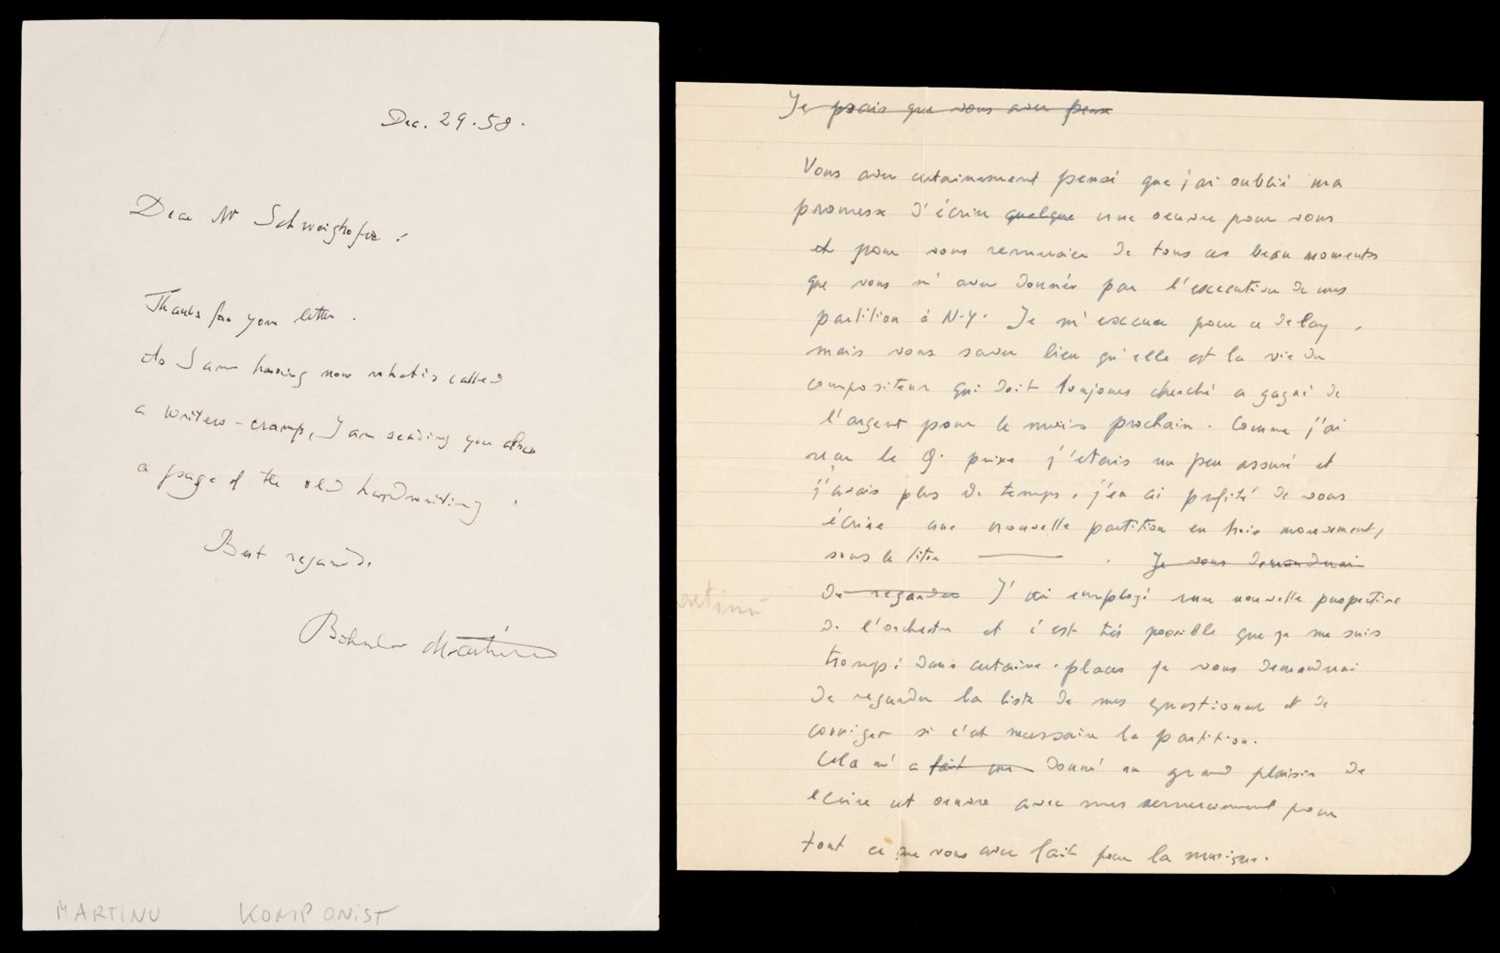 Dec. 29. 58.
Dear Mr Schweighofer!
Thanks for your letter.
As I am having now what is called
a writers-cramp, I am sending you also
a page of the old handwriting.
Best regards.
Bohuslav Martinů
MARTINU KOMPONIST
Je que vous avez pensé
Vous avez certainement pensé que j'ai oublié ma
promesse d'écrire quelque une oeuvre pour vous
et pour vous remercier de tous ces beau moments
que vous m'avez donnés par l'execution de mes
partition à N.Y. Je m'excuse pour ce delay,
mais vous savez bien qu'elle est la vie du
compositeur qui doit toujours cherché a gagné de
l'argent pour le mois prochain. Comme j'ai
recu le G. prixe j'etais un peu assuré et
j'avais plus de temps, j'en ai profité de vous
écrire une nouvelle partition en trois mouvement,
sous le titre ——— . Je vous demandrai
de regarder J'ai employé une nouvelle perspective
de l'orchestre et c'est très possible que je me suis
trompé dans certaine places je vous demandrai
de regarder la liste de mes questionnes et de
corriger si c'est necessaire la partition.
Cela m'a fait une donné un grand plaisir de
ecrire cet oeuvre avec mes remerciement pour
tout ce que vous avez fait pour la musique.
Martinů